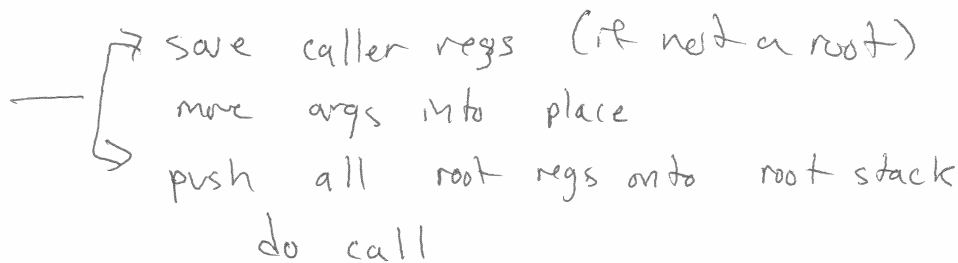 save caller regs (if not a root)
move args into place
push all root regs onto root stack
do call